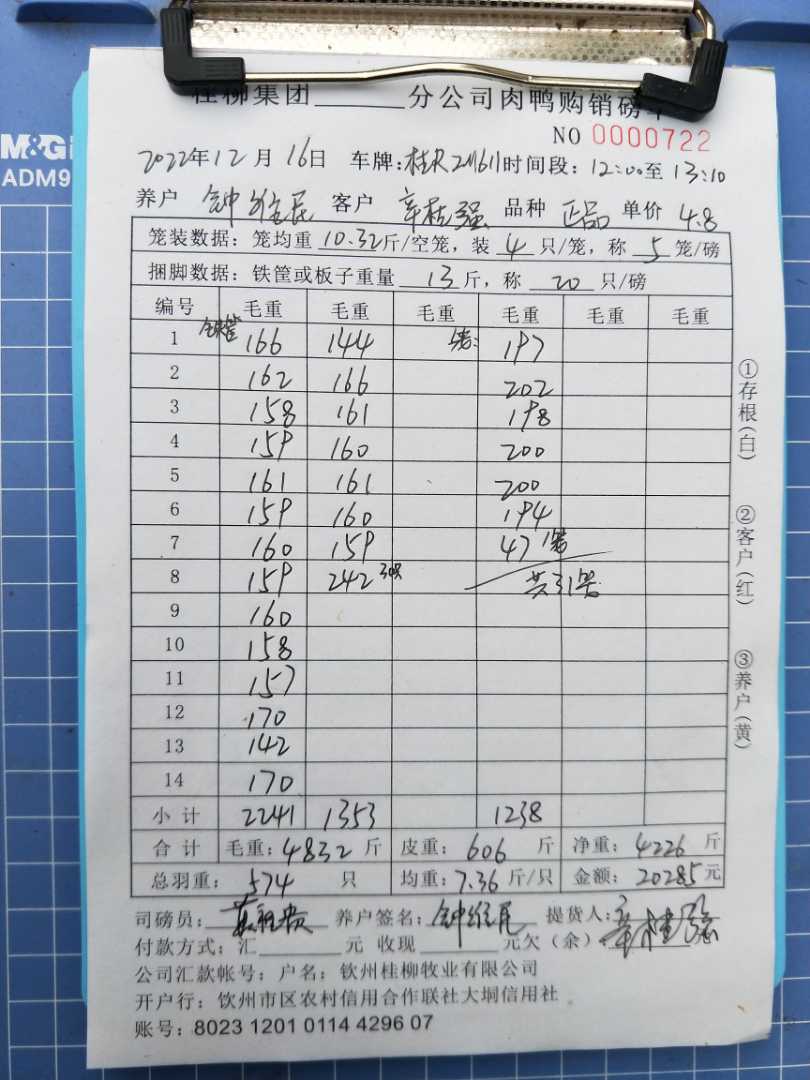 M&G
ADM9
桂柳集团______分公司肉鸭购销磅单
NO 0000722
2022年12月16日 车牌:桂R2N611时间段:12:00至13:10
养户 钟维尾 客户 辛桂强 品种 正品 单价 4.8
笼装数据:笼均重 10.32斤/空笼,装 4 只/笼,称 5 笼/磅
捆脚数据:铁筐或板子重量 13 斤,称 20 只/磅
编号 毛重 毛重 毛重 毛重 毛重 毛重
1 铁筐 166 144 197
2 162 166 202
3 158 161 198
4 159 160 200
5 161 161 200
6 159 160 194
7 160 159 47 1笼
8 159 242 30只 共31笼
9 160
10 158
11 157
12 170
13 142
14 170
小计 2241 1353 1238
合计 毛重:4832 斤 皮重:606 斤 净重:4226 斤
总羽重:574 只 均重:7.36 斤/只 金额:20285元
司磅员: 养户签名:钟维尾 提货人:辛桂强
付款方式:汇______元 收现______元欠(余)
公司汇款帐号:户名:钦州桂柳牧业有限公司
开户行:饮州市区农村信用合作联社大垌信用社
账号:8023 1201 0114 4296 07
①存根(白)
②客户(红)
③养户(黄)